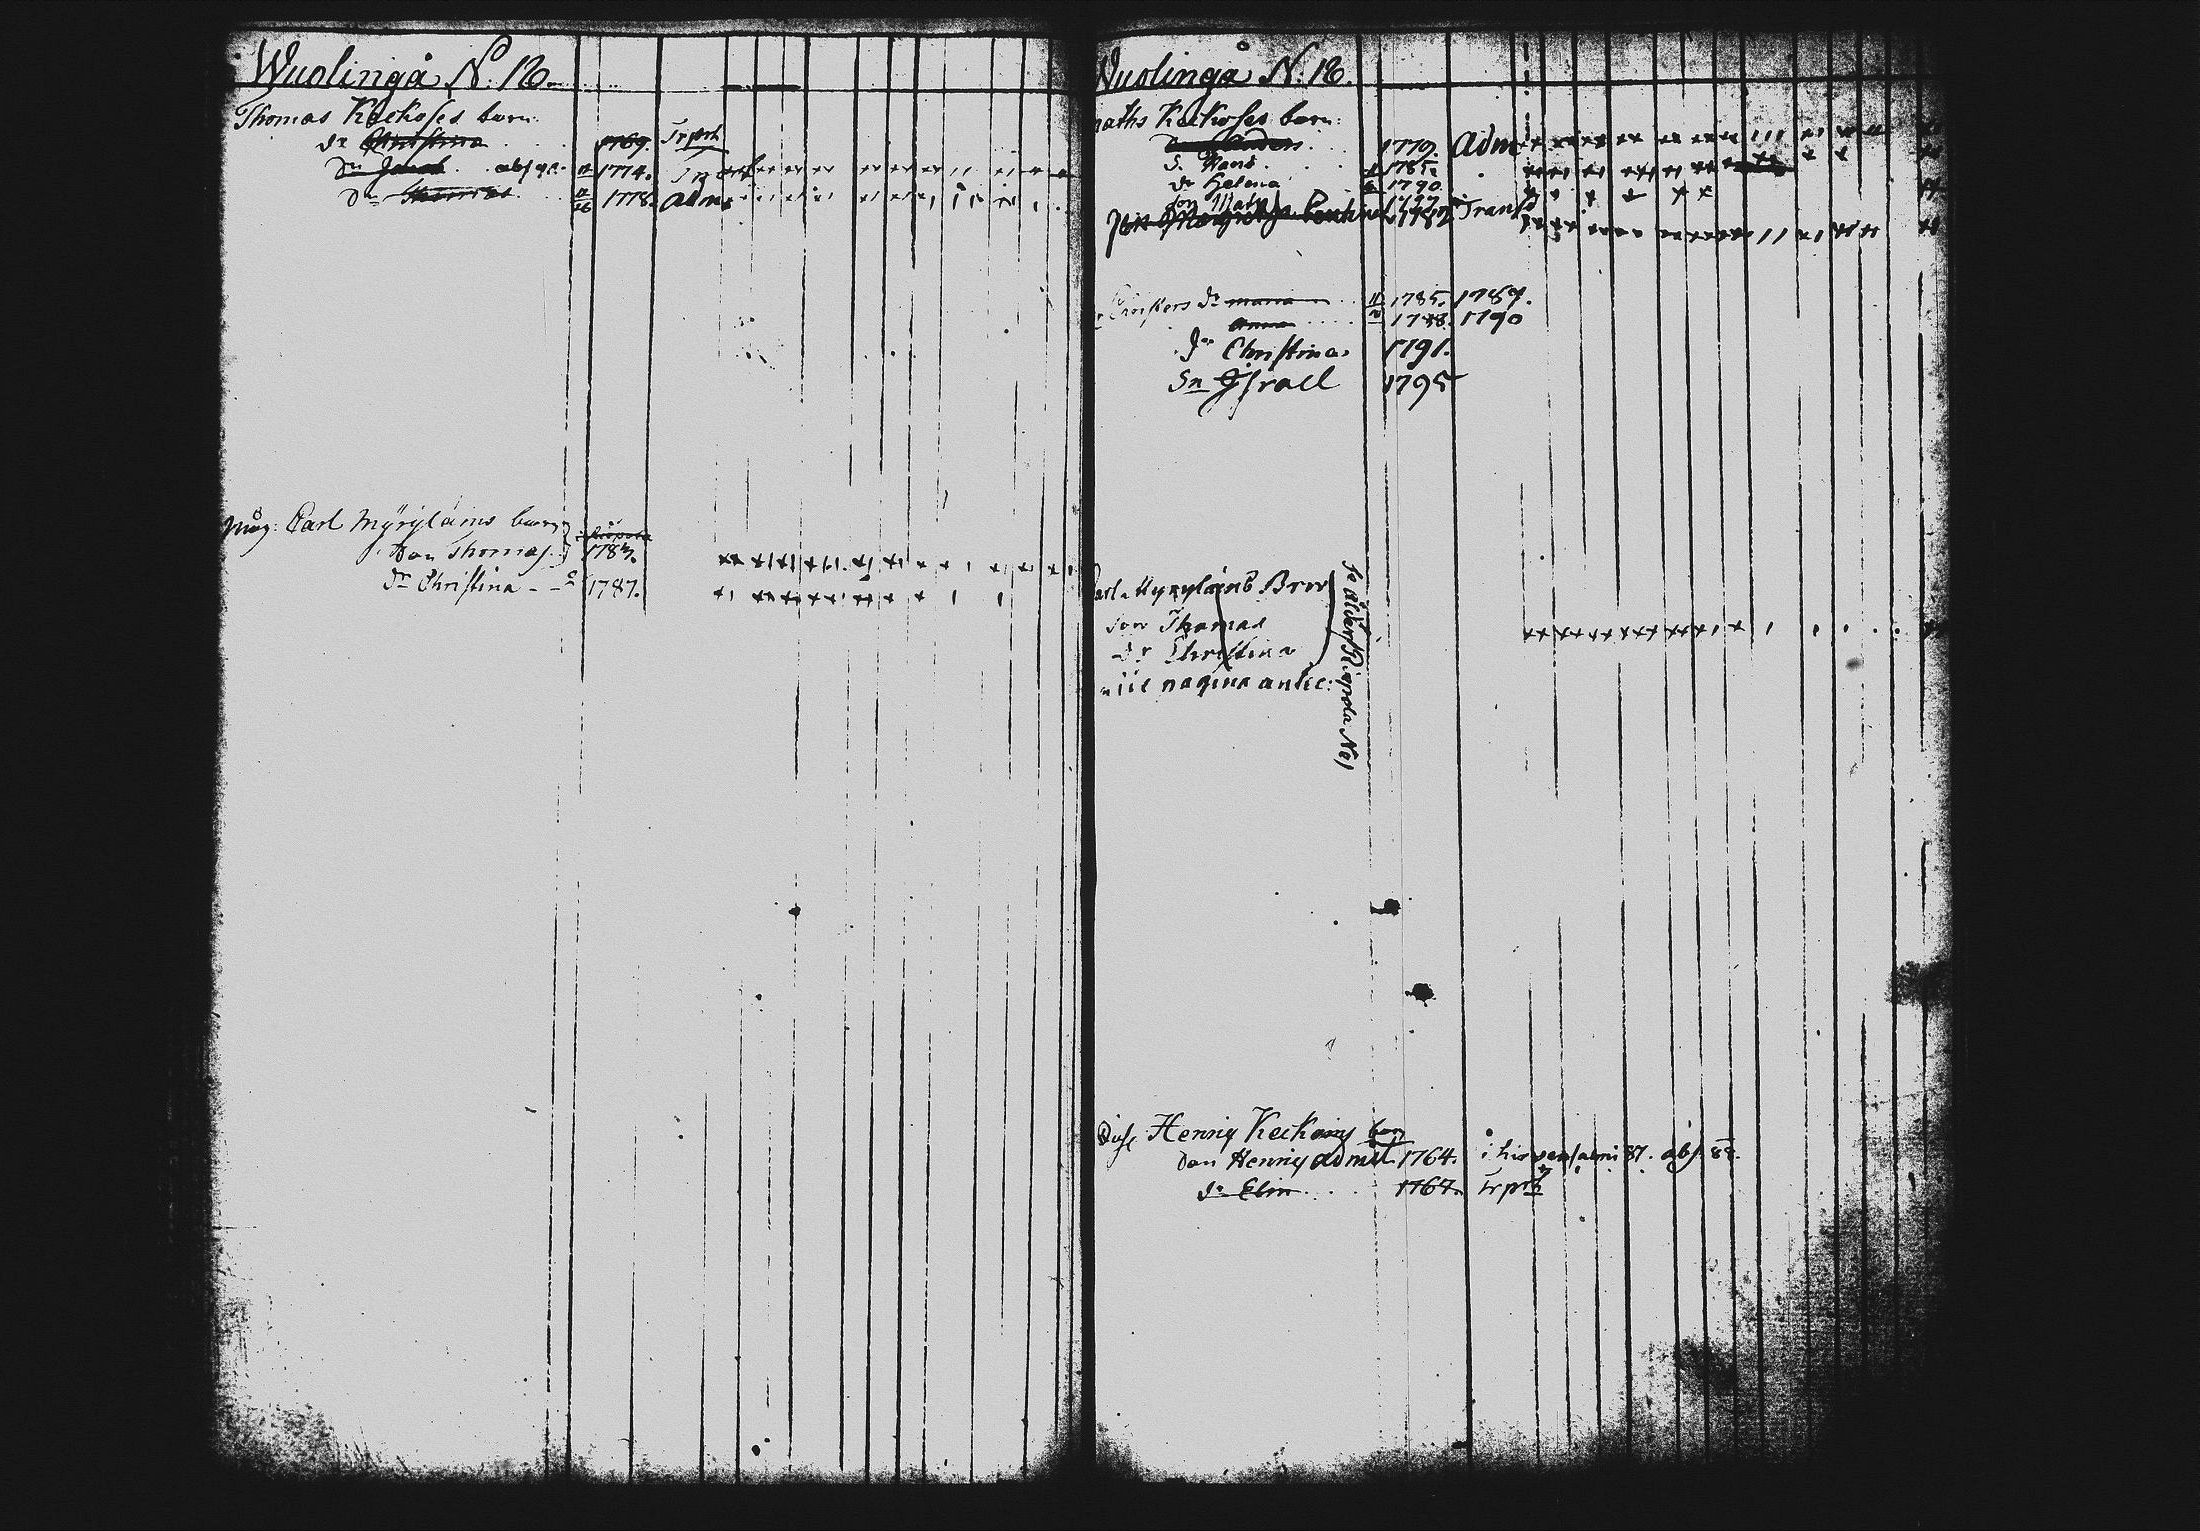 Wuolingå N: 18.
Thomas Keckoses barn:
dr Christina 1769. Trprt
Sn Jacob absqv. 1774.
Sn Thomas 1778. Adm
Måg: Carl Myrylains barn
Son Thomas 1783.
dr Christina 1787.
Wuolinga N. 18.
Maths Keckoses barn:
Son Anders 1779. Adm
S. Hans 1785.
dr Helena 1790
Son Mats
1782 Transp
Christers dr Maria 1785. 1789.
Anna 1788. 1790
dr Christina 1791.
Sn Israel 1795
Carl Myryläins Brn
son Thomas
dr Christina
pagina antec:
Riapola No 1
Henrig Keckoins barn
Son Henrig Admit. 1764. i hirvensalmi 87. abs. 88.
dr Elin 1767. Trprt